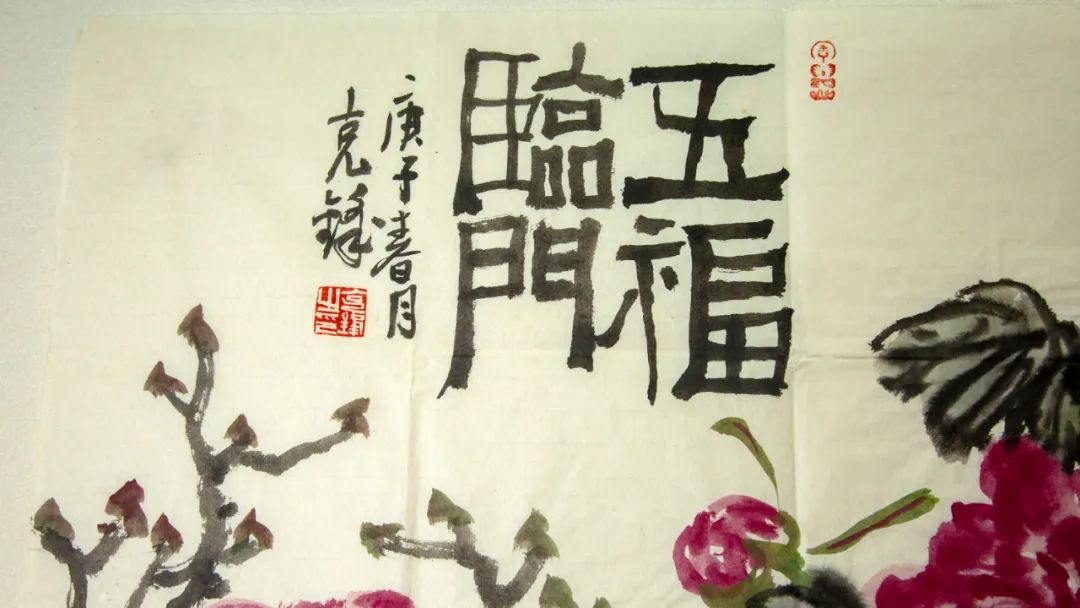 五福
臨門
庚子春月
克鋒